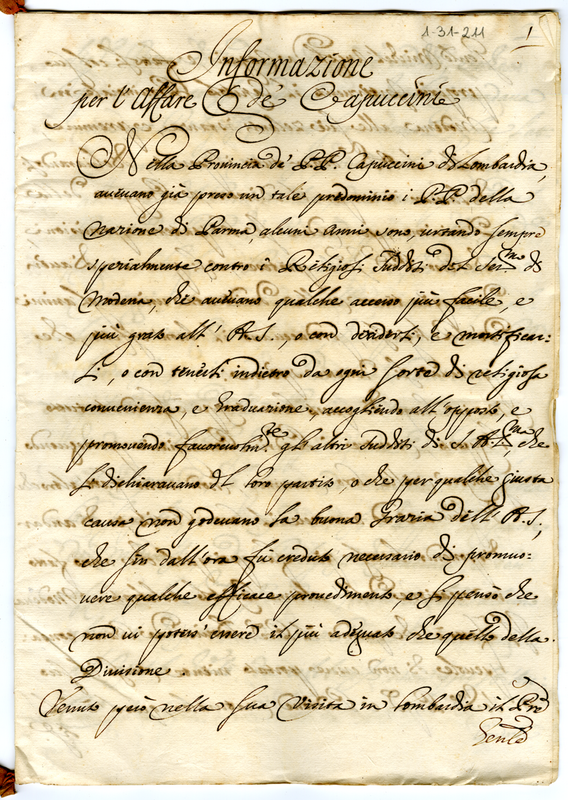 1-31-211
1
Informazione
per l'Affare de' Capuccini
Nella Provincia de' P.P. Capuccini di Lombardia,
aueuano già preso un tale predominio i P.P. della
nazione di Parma, alcuni anni sono, urtando sempre
specialmente contro i Religiosi sudditi del Ser.mo di
Modena, che aueuano qualche accesso più facile, e
più grato all' A.S. o con deriderli, e mortificar-
li, o con tenerli indietro da ogni sorte di religiosa
convenienza, e graduazione, accogliendo all'opposto, e
promouendo fauoreuolm.te gli altri sudditi di S.A.Ser.ma, che
si dichiarauano del loro partito, o che per qualche giusta
causa non godeuano la buona Grazia dell' A.S.,
che sin dall'ora fù creduto necessario di promuo-
uere qualche efficace prouedimento, e si pensò che
non ui potess' essere il più adequato che quello della
Diuisione
Venuto perciò nella sua Visita in Lombardia il Pre
Gen.le